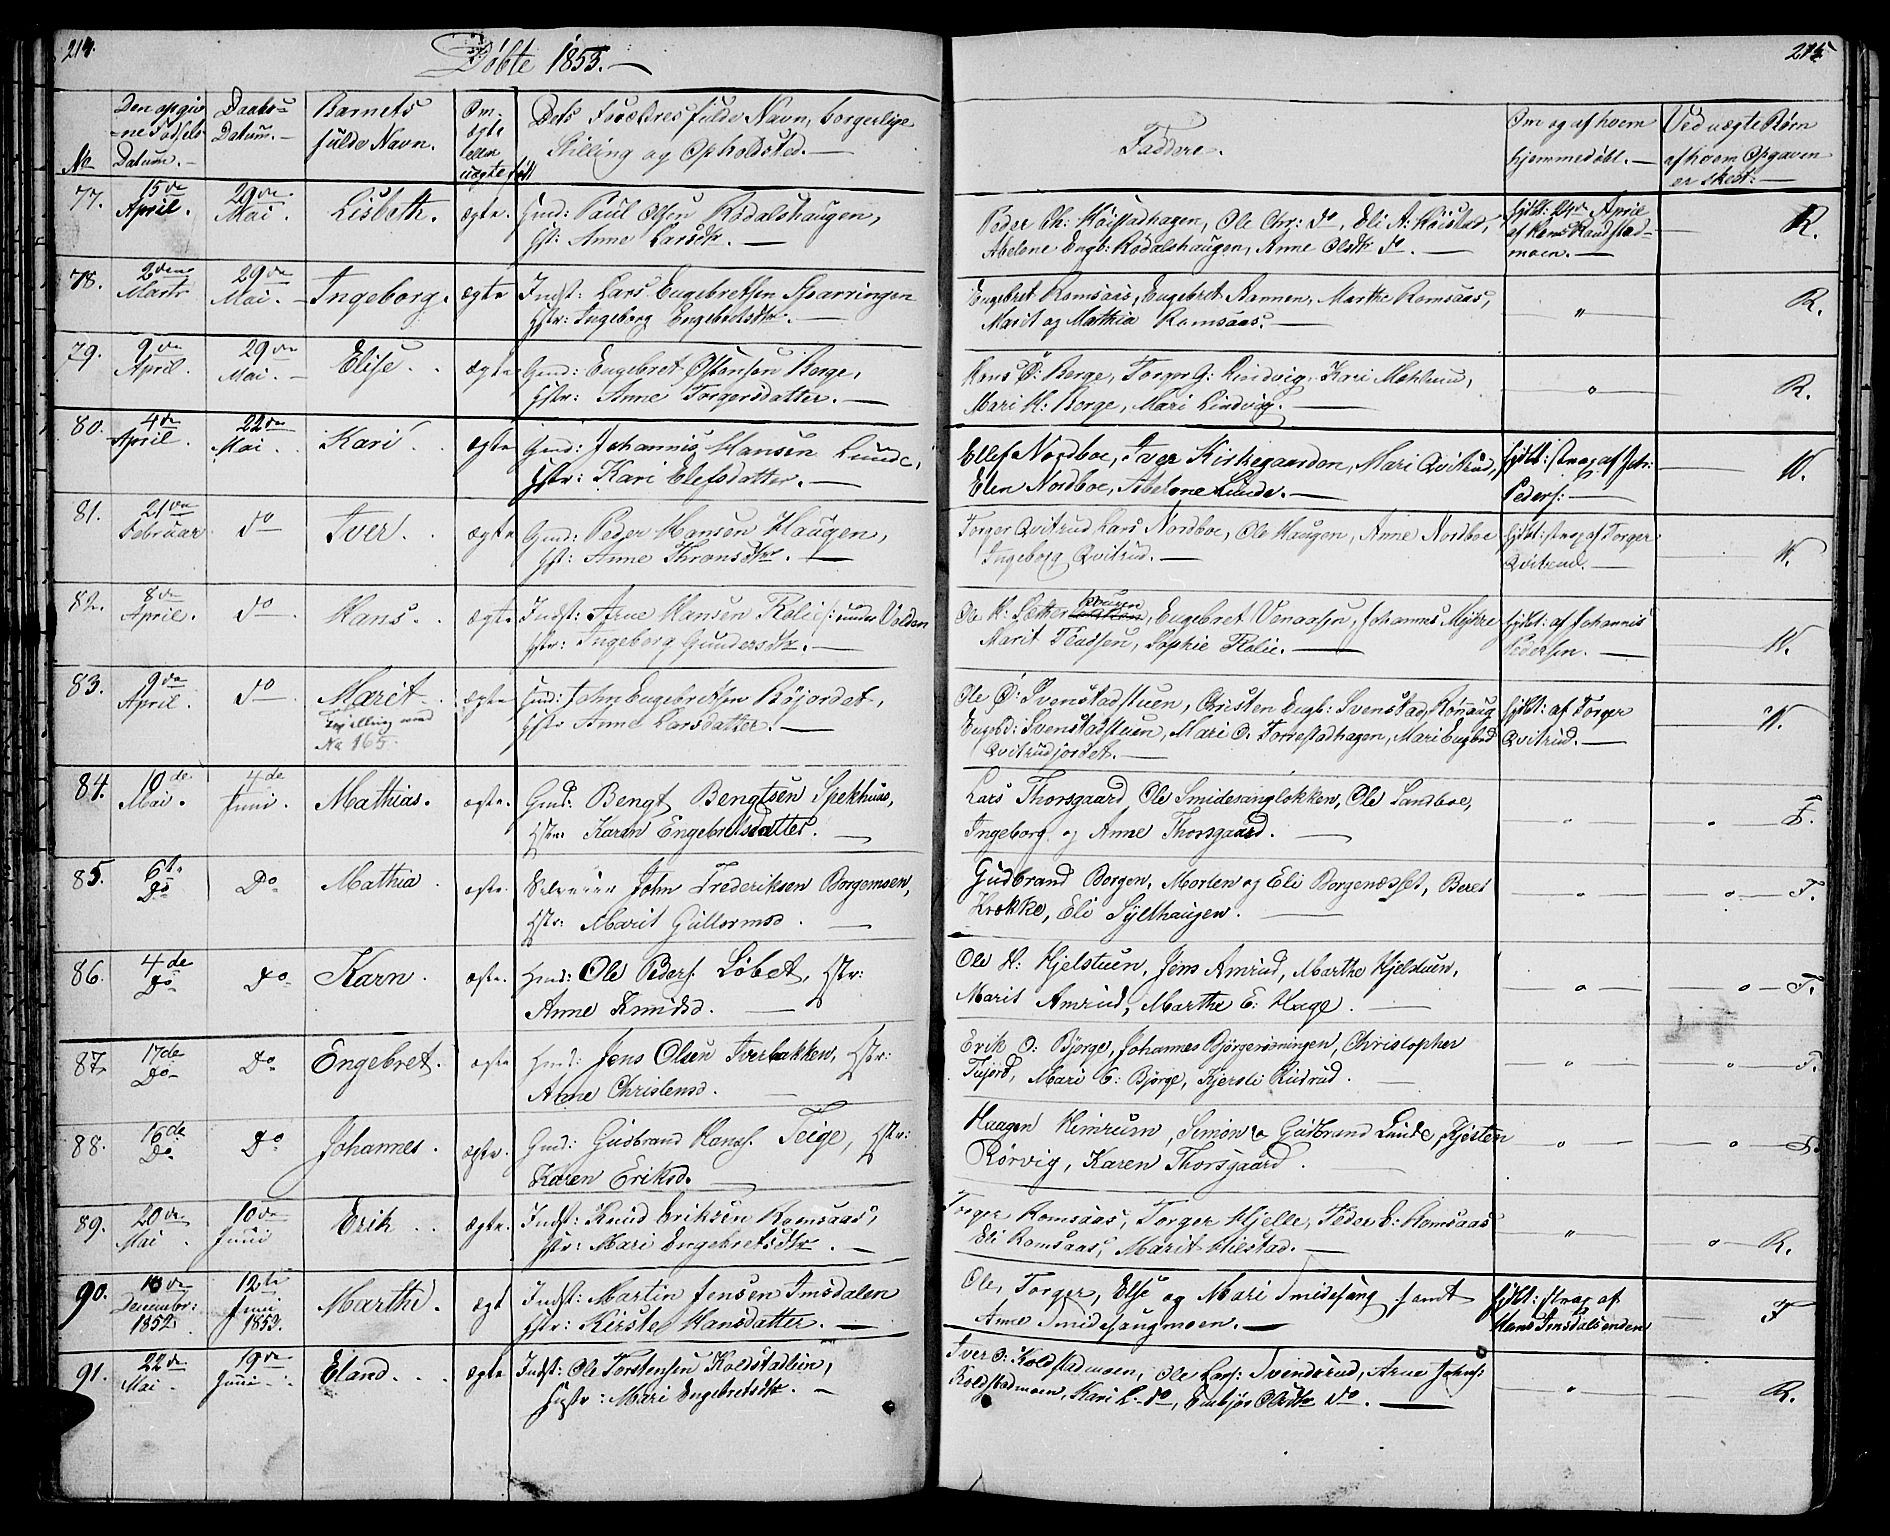 214.
Døbte 1853.
No
Den opgivne Fødsels Datum.
Daabs Datum.
Barnets fulde Navn.
Om ægte eller uægte født
Dets Forældres fulde Navn, borgerlige Stilling og Opholdsted.
77. 15de April. 29de Mai. Lisbeth. ægte. Gmd: Paul Olsen Rodalshaugen,
Hst: Anne Larsdtr.
78. 2den Marts 29de Mai. Ingeborg. ægte Indst: Lars Engebretsen Sparringen
Hstr: Ingeborg Engebretsdtr.
79. 9de April. 29de Mai. Elise. ægte Gmd: Engebret Ostensen Berge,
Hstr: Anne Torgersdatter.
80. 4de April. 22de Mai. Kari. ægte Gmd: Johannis Hansen Lunde,
Hstr: Kari Elefsdatter.
81. 21de Februar do Iver. ægte Gmd: Peder Hansen Haugen,
Hst: Anne Thronsdtr.
82. 8de April. do Hans. ægte Indst: Arne Hansen Rolie: under Volden
Hstr: Ingeborg Gundersdtr.
83. 9de April. do Marit. ægte Gmd: John Engebretsen
Hstr Anne Larsdatter.
Tvilling med
No 165.
84. 10de Mai. 4de Juni. Mathias. ægte. Gmd: Bengt Bengtsen Spekhuus,
Hstr: Karen Engebretsdatter.
85. 6te Do Do Mathia. ægte. John Frederiksen Borgemoen,
Hstr: Marit Gullormsd.
86. 4de Do Do Karn. ægte. Hmd: Ole Peders. Løbet, Hstr:
Anne Knudsd.
87. 17de Do Do Engebret. ægte Hmd: Jens Olsen Iverbakken, Hstr:
Anne Christensd.
88. 16de Do Do Johannes. ægte. Gmd: Gudbrand Hans. Teige, Hstr:
Karen Eriksd.
89. 20de Mai 10de Juni Erik. ægte. Indst: Knud Eriksen Romsaas,
Hstr: Mari Engebretsdtr.
90. December: 1852. 12te Juni 1853. Marthe. ægt Indst: Martin Jensen Imsdalen
Hstr: Kirste Hansdatter.
91. 22de Mai. 19de Juni. Eland. ægte Indst: Ole Torstensen Koldstadlein,
Hstr: Mari Engebretsdtr.
215
Faddere.
Om og af hvem hjemmedøbt.
Ved uægte Børn af hvem Opgaven er skeet:
Peder Ch: Høistadhagen, Ole Chr: do, Eli A: Høistad, hjdbt: 24de April
Abelone Engb: Rodalshaugen, Anne Olsdtr do. af Hans Randstadmoen. R.
Engebret Romsaas, Engebret Aannen, Marthe Romsaas,
Marit og Mathia Romsaas. " R.
Hans O: Berge, Torger G: Lindvig, Kari Mæhlum,
Mari H: Berge, Mari Lindvig. " R.
Ellef Nordboe, Iver Kirkegaarden, Mari Qvitrud, hjdbt: strax af Joh:
Elen Nordboe, Abelone Lunde. Peders: W.
Torger Qvitrud Lars Nordboe, Ole Haugen, Anne Nordboe hjdbt: strax af Torger
Ingeborg Qvitrud. Qvitrud. W.
Ole H: Sætter, Engebret Venaasen, Johannes Myhre hjdbt: af Johannis
Marit Pladsen, Sophie Rolie. Pedersen. W.
Ole O: Svenstadstuen, Christen Engb: Svenstad, Rønnaug hjdbt: af Torger
Engbd: Svenstadstuen, Mari O. Forrestadhagen, Mari Engbrd Qvitrud. W.
Qvitrudjordet.
Lars Thorsgaard, Ole Smidesanglokken, Ole Sandboe,
Ingeborg og Anne Thorsgaard. " " F.
Gudbrand Borgen, Morten og Eli Borgenæsset, Beret
Krække, Eli Sylthaugen. " " F.
Ole H: Hjelstuen, Jens Amrud, Marthe Hjelstuen,
Marit Amrud, Marthe E: Hage. " " F.
Erik O: Bjørge, Johannes Bjørgerøsningen, Christopher
Tujord, Mari C: Bjørge, Kjersti Rudrud. " " F.
Haagen Himrum, Simon o Gudbrand Lunde, Kjersten
Rørvig, Karen Thorsgaard. " " F.
Torger Romsaas, Torger Hjelle, Peder E: Romsaas
Eli Romsaas, Marit Hilstad. " " R.
Ole, Torger, Else og Mari Smidesang samt hjdbt: strax af
Anne Smidesangmoen. Hans Imsdalsenden F
Iver O: Koldstadmoen, Ole Lars: Svendsrud, Arne Johns:
Koldstadmoen, Kari L. do, Embjør Olsdtr do. " R.